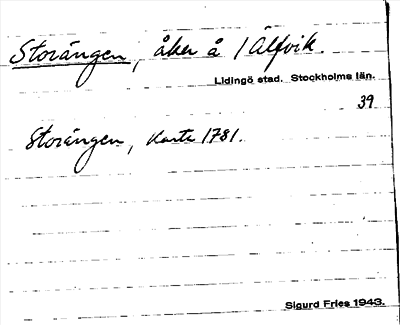 Storängen, åker å 1 Älfvik.
Lidingö stad. Stockholms län.
39
Storängen, Karta 1781.
Sigurd Fries 1943.